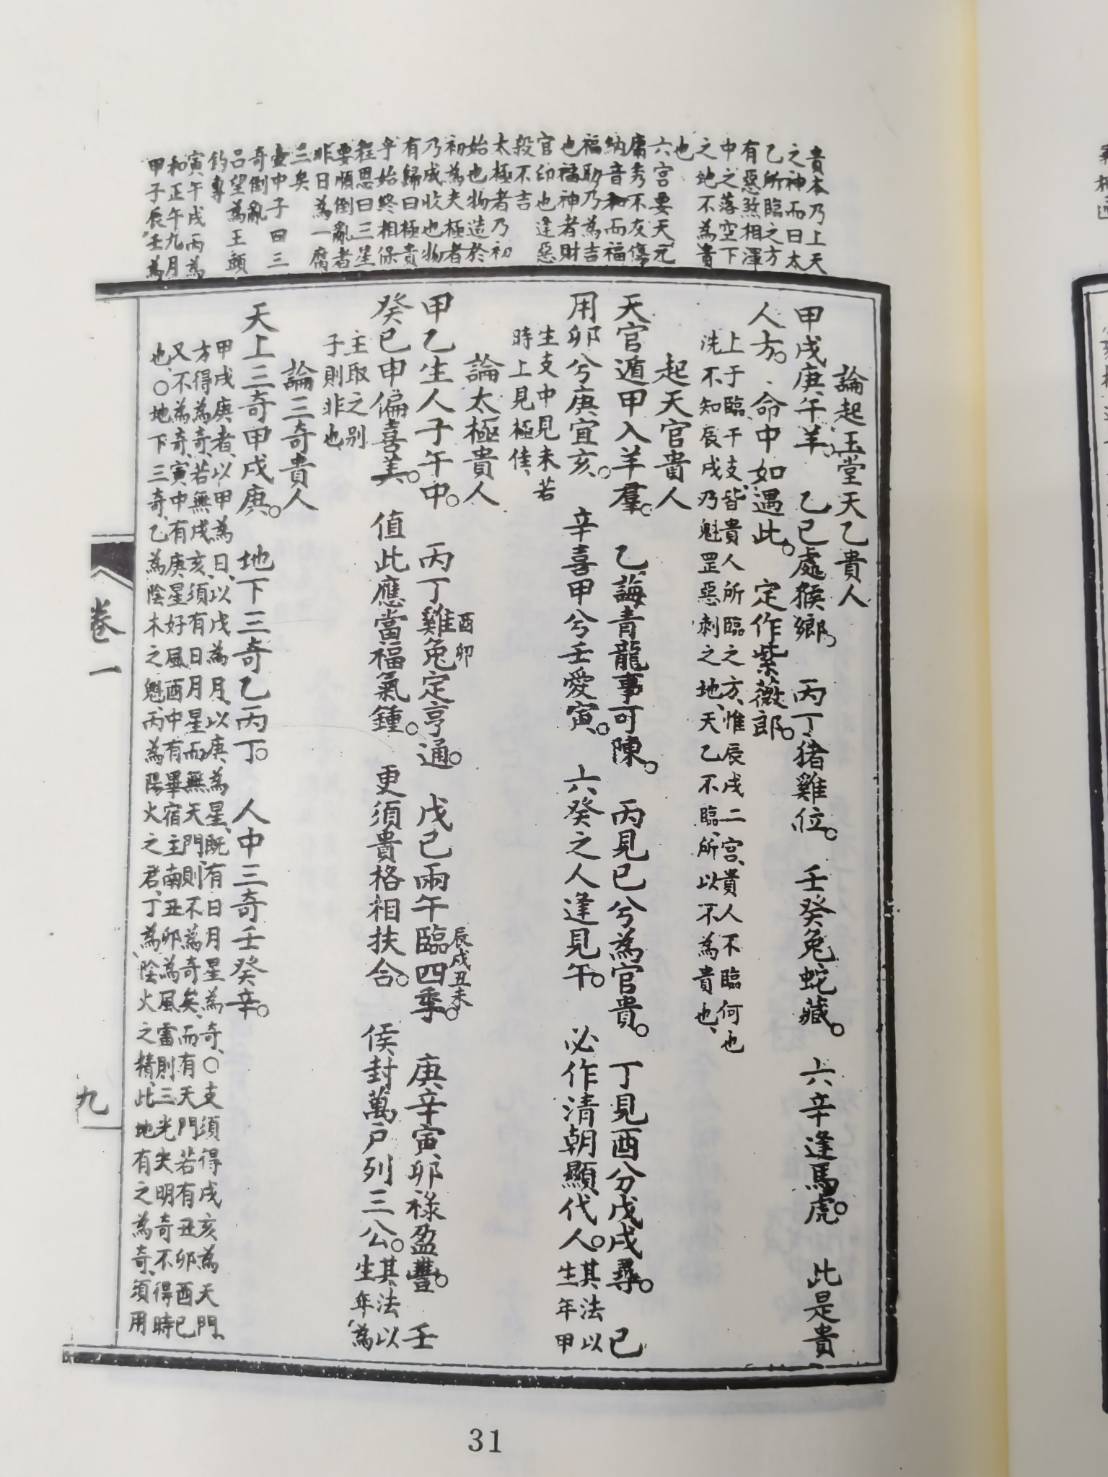 貴本乃上天
之神而曰太
乙所臨之方
有惡煞相渾
中之落空下
之地不為貴
也
六宮要天元
庸夯不友傷
納音和而福
福助乃為吉
也福神者財
官印也逢惡
殺不吉
太極者乃初
始也物造於
初為夫極者
乃成收也物
有歸曰極貴
乎始終相保
程思曰三星
要順倒亂者
非日為一腐
三矣
壺中子曰三
奇倒亂
呂望為王頭
釣專
寅午戌丙為
和正午九月
甲子辰壬為
論起玉堂天乙貴人
甲戌庚午羊、乙己處猴鄉、丙丁猪雞位。壬癸兔蛇藏。六辛逢馬虎。此是貴
人方。命中如遇此。定作紫薇郎。
上于臨干支皆貴人所臨之方、惟辰戌二宮、貴人不臨何也
洗不知辰戌乃魁罡惡刺之地、天乙不臨、所以不為貴也、
起天官貴人
天官遁甲入羊羣。乙誨青龍事可陳。丙見巳兮為官貴。丁見酉分戊戌尋。已
用卯兮庚宜亥。辛喜甲兮壬愛寅。六癸之人逢見午。必作清朝顯代人。其法以
生年甲
生支中見未若
時上見極佳、
論太極貴人
甲乙生人子午中。丙丁雞兔定亨通。戊己兩午臨四季。庚辛寅卯祿盈豐。壬
酉卯
辰戌丑未
癸巳申偏喜美。值此應當福氣鍾。更須貴格相扶合。侯封萬戶列三公。其法以
生年為
主取之別
子則非也
論三奇貴人
天上三奇甲戌庚。地下三奇乙丙丁。人中三奇壬癸辛。
甲戌庚者、以甲為日、以戊為月、以庚為星、既有日月星為奇、〇支須得戌亥為天門、
方得為奇、若無戌亥須有日月星而無天門、則不為奇矣、而有天門若有丑卯酉巳
又不為奇、寅中有庚星好風酉中有畢宿主南丑卯為風雷則三光失明奇不得時
也、〇地下三奇乙為陰木之魁、丙為陽火之君、丁為陰火之精、此地有之為奇、須用
卷一
九
31